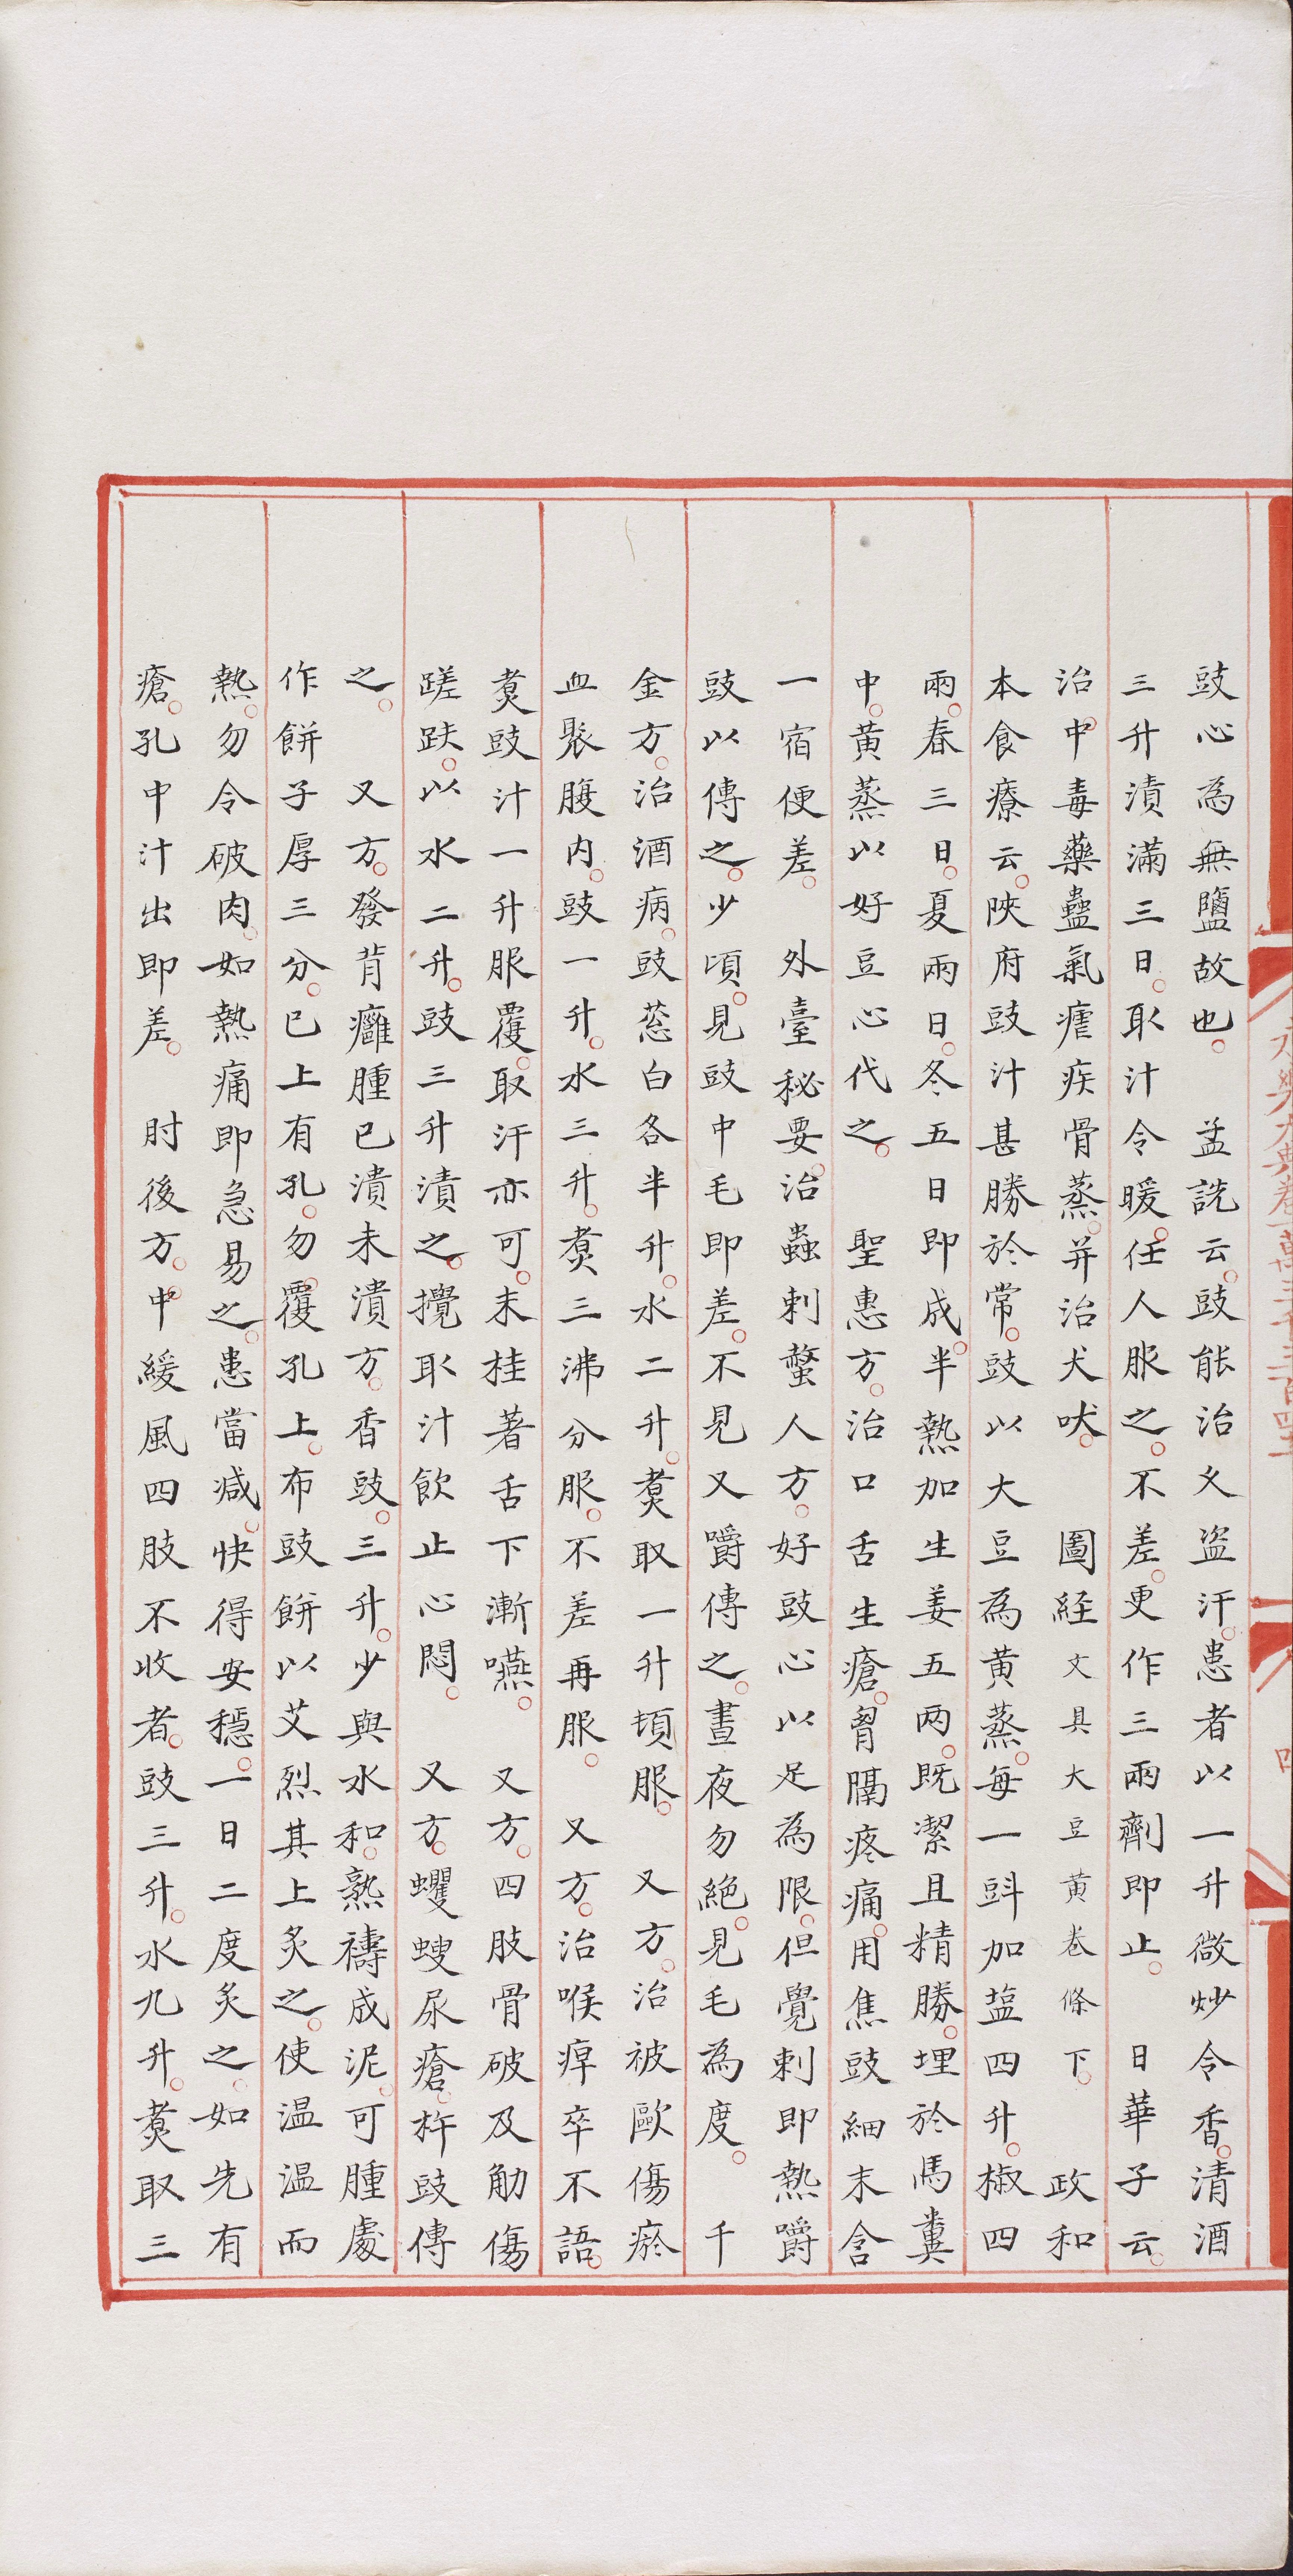 豉心為無鹽故也。　孟詵云。豉能治久盗汗。患者以一升微炒令香。清酒
三升漬滿三日。取汁令暖。任人服之。不差。更作三兩劑即止。　日華子云。
治中毒藥蠱氣瘧疾骨蒸。并治犬吠。　圖經文具大豆黄卷條下。　政和
本食療云。陝府豉汁甚勝於常。豉以大豆為黄蒸。每一㪷加塩四升。椒四
兩。春三日。夏兩日。冬五日即成。半熱加生姜五两。既潔且精勝。埋於馬糞
中。黄蒸以好豆心代之。　聖惠方。治口舌生瘡。胷膈疼痛。用焦豉細末含
一宿便差。　外臺秘要。治蟲刺螫人方。好豉心以足為限。但覺刺即熱嚼
豉以傅之。少頃。見豉中毛即差。不見又嚼傅之。晝夜勿絶。見毛為度。　千
金方。治酒病。豉葱白各半升。水二升。煑取一升頓服。　又方。治被歐傷瘀
血聚腹内。豉一升。水三升。煑三沸分服。不差再服。　又方。治喉痺卒不語。
煑豉汁一升服覆。取汗亦可。末桂著舌下漸嚥。　又方。四肢骨破及觔傷
蹉跌。以水二升。豉三升漬之。攪取汁飲止心悶。　又方。蠼螋尿瘡。杵豉傅
之。　又方。發背癰腫已潰未潰方。香豉。三升。少與水和。熟擣成泥。可腫處
作餅子厚三分。已上有孔。勿覆孔上。布豉餅以艾烈其上炙之。使温温而
熱。勿令破肉。如熱痛即急易之。患當减。快得安穏。一日二度炙之。如先有
瘡。孔中汁出即差。　肘後方。中緩風四肢不收者。豉三升。水九升。煑取三
永樂大典卷一萬三千三百四十